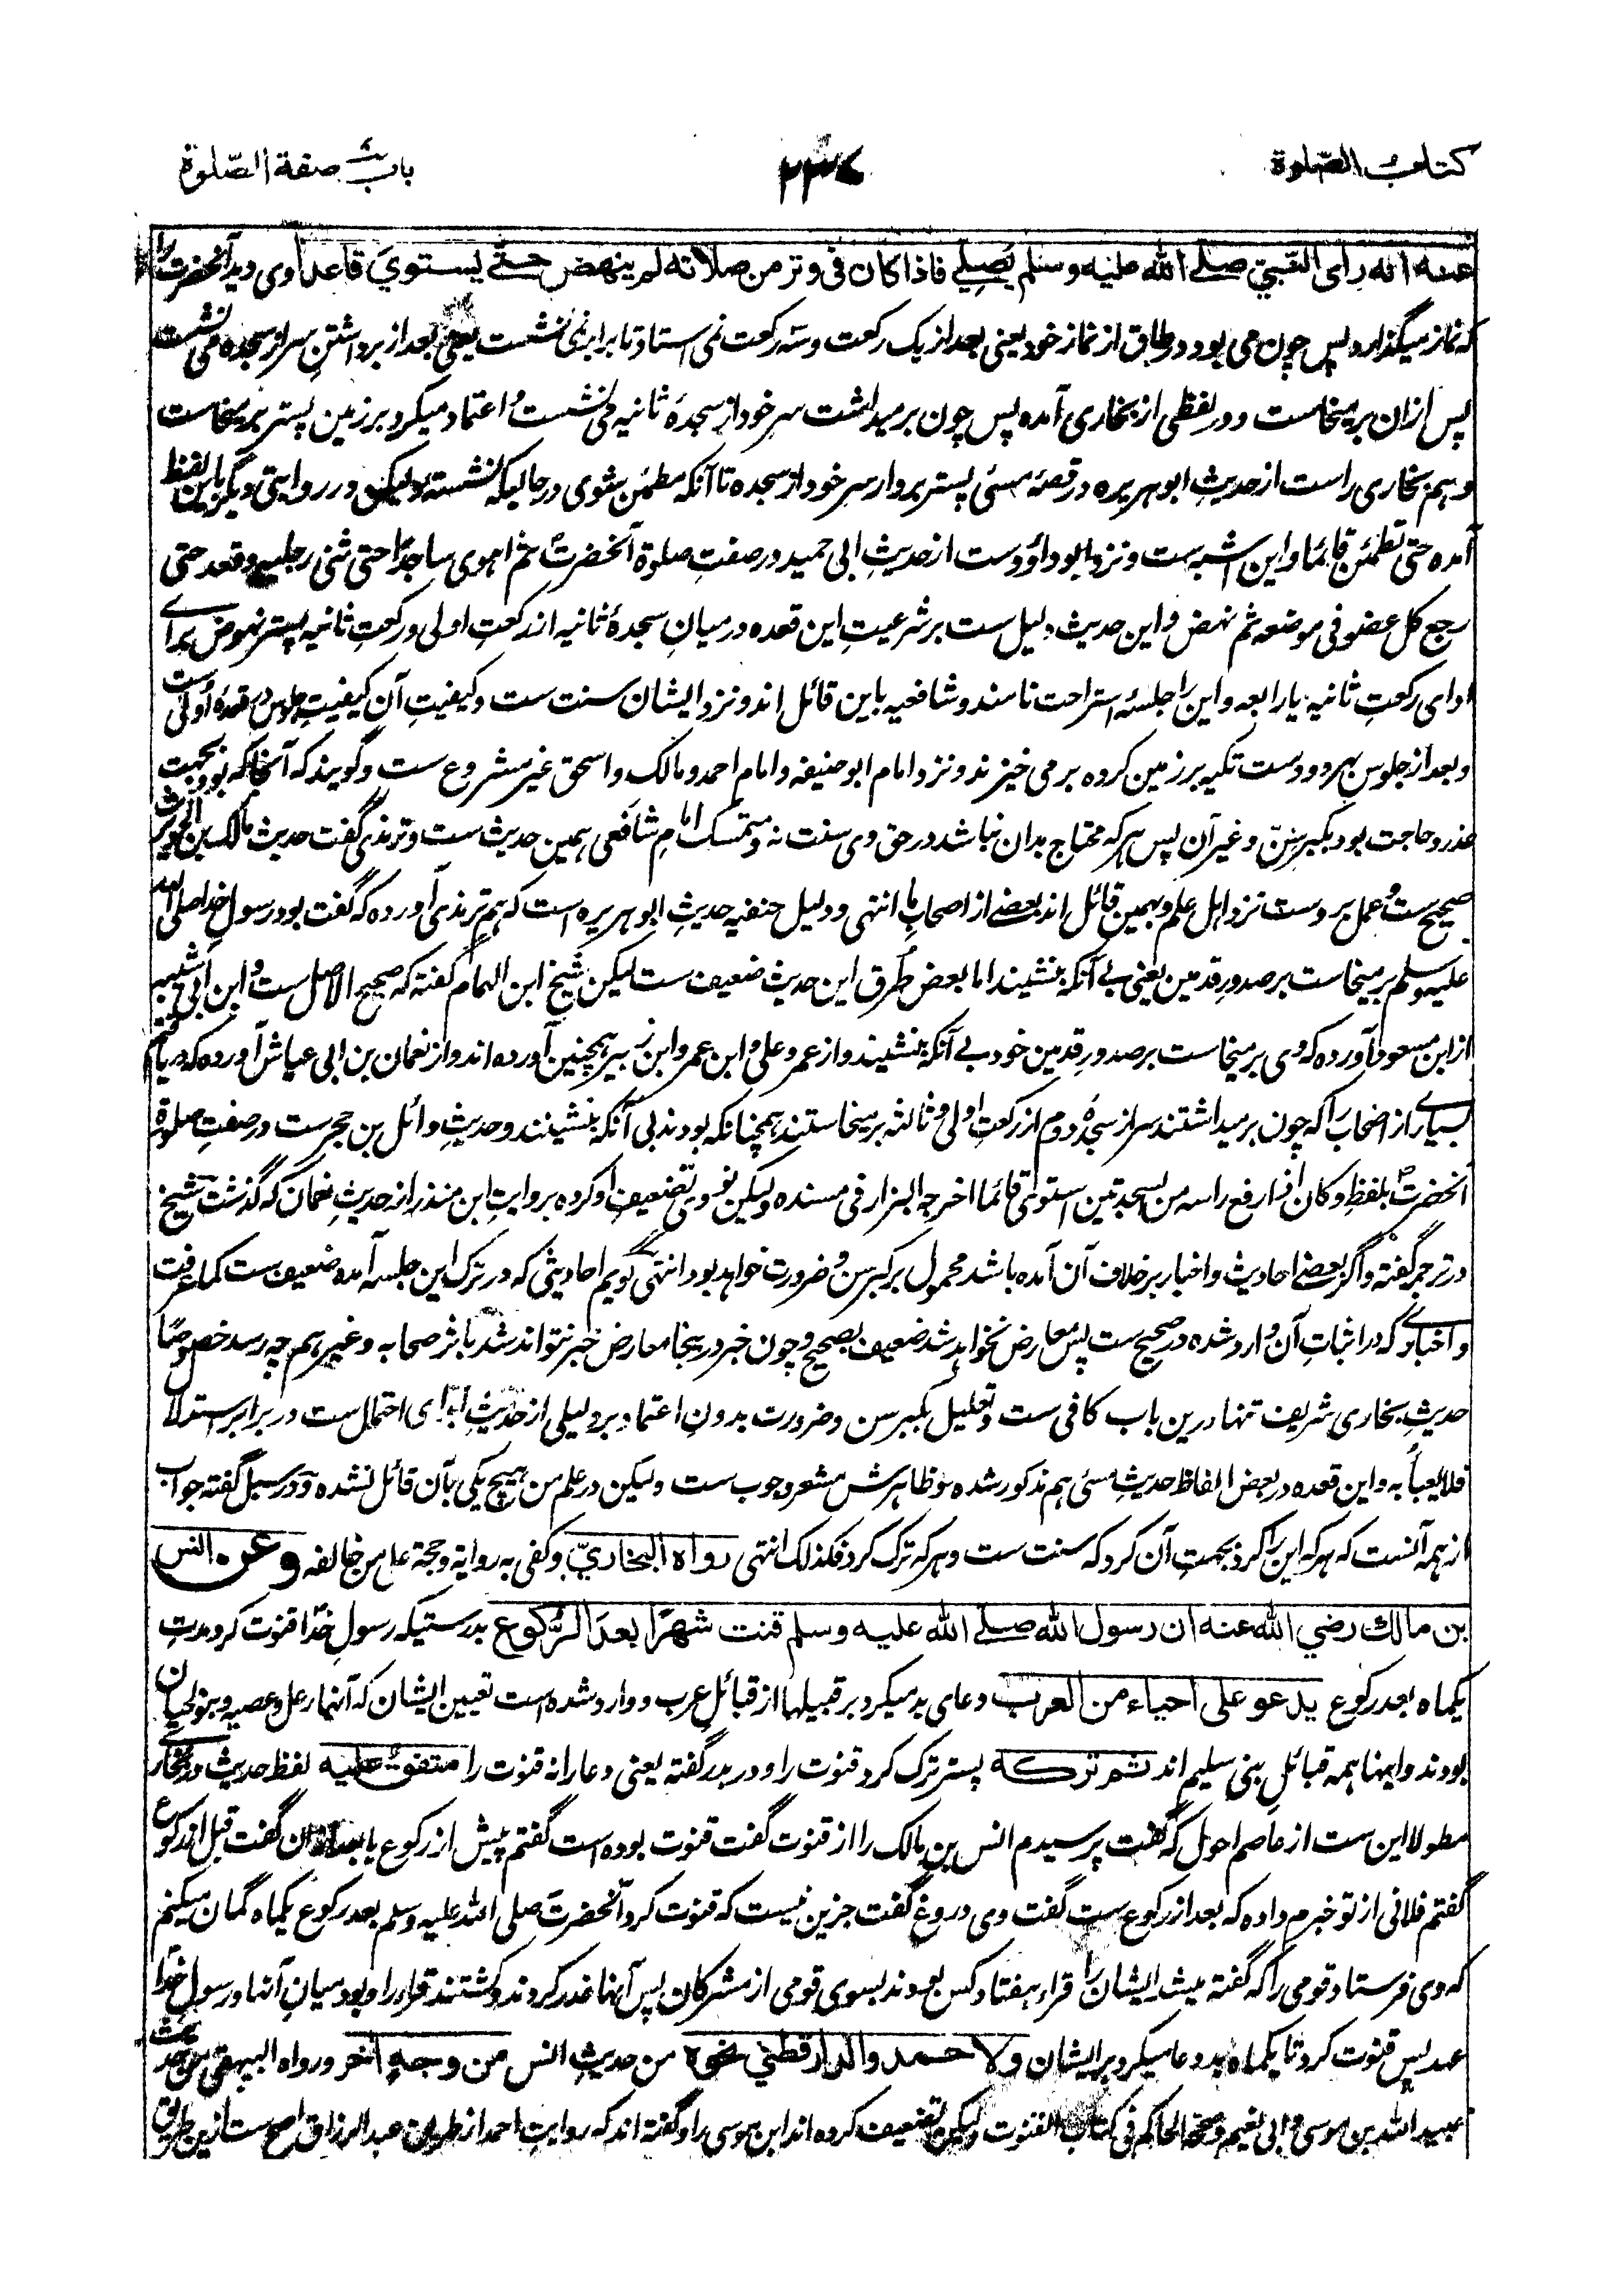 كتاب الصّلوة
۲۳۷
باب صفة الصّلوة
عنه انه رأى النبيّ صلى الله عليه وسلم يصلي فاذا كان في وتر من صلاته لم ينهض حتى يستوي قاعدا وی دید آنحضرت را
که نماز میگذارد پس چون می بود در طاق از نماز خود یعنی بعد از یک رکعت و سه رکعت نمی استاد تا برابر می نشست یعنی بعد از برداشتن سر از سجده می نشست
پس ازان بر میخاست و در لفظی از بخاری آمده پس چون بر میداشت سر خود از سجدۀ ثانیه می نشست و اعتماد میکرد بر زمین پستر بر میخاست
و هم بخاری راست از حدیث ابو هریره در قصۀ مسئ پستر بردار سر خود از سجده تا آنکه مطمئن شوی در حالیکه نشستۀ ولیکن در روایتی دیگر باین لفظ
آمده حتی تطمئن قائما و این اشبه ست و نزد ابو داؤد ست از حدیث ابی حمید در صفت صلوة آنحضرت ثم اهوی ساجدا حتی ثنی رجلیه و قعد حتی
رجع کل عضو فی موضعه ثم نهض و این حدیث دلیل ست بر شرعیت این قعده در میان سجدۀ ثانیه از رکعت اولی و رکعت ثانیه پستر نهوض برای
ادای رکعت ثانیه یا رابعه و این را جلسۀ استراحت نامند و شافعیه باین قائل اند و نزد ایشان سنت ست و کیفیت آن کیفیت جلوس در قعدۀ اولی ست
و بعد از جلوس بهر دو دست تکیه بر زمین کرده بر می خیزند و نزد امام ابو حنیفه و امام احمد و مالک و اسحق غیر مشروع ست و گویند که آنجا که بود بجهت
عذر و حاجت بود بکبر سنّ و غیر آن پس هر که محتاج بدان نباشد در حق وی سنت نه و متمسک امام شافعی همین حدیث ست و ترمذی گفت حدیث مالک بن الحویرث
صحیح ست و عمل بروست نزد اهل علم و بهمین قائل اند بعضے از اصحاب ما انتهی و دلیل حنفیه حدیث ابو هریره است که هم ترمذی آورده که گفت بود رسول خدا صلی الله
علیه وسلم بر میخاست بر صدور قدمین یعنی بے آنکه بنشیند اما بعض طرق این حدیث ضعیف ست لیکن شیخ ابن الهمام گفته که صحیح الاصل ست و ابن ابی شیبه
از ابن مسعود آورده که وی بر میخاست بر صدور قدمین خود بے آنکه بنشیند و از عمر و علی و ابن عمر و ابن زبیر همچنین آورده اند و از نعمان بن ابی عیاش آورده که دریافتم
بسیارے از اصحاب را که چون بر میداشتند سر از سجدۀ دوم از رکعت اولی و ثالثه بر میخاستند همچنانکه بودند بی آنکه بنشینند و حدیث وائل بن حجرست در صفت صلوة
آنحضرت بلفظ و کان اذا رفع راسه من السجدتین استوی قائما اخرجه البزار فی مسنده ولیکن نووی تضعیف او کرده بروایت ابن منذر از حدیث نعمان که گذشت شیخ
در ترجمه گفته و اگر بعضے احادیث و اخبار بر خلاف آن آمده باشد محمول بر کبر سن و ضرورت خواهد بود انتهی گویم احادیثی که در ترک این جلسه آمده ضعیف ست کما عرفت
و اخبارے که در اثبات آن وارد شده در صحیح ست پس معارض نخواهد شد ضعیف بصحیح و چون خبر درینجا معارض خبر نتواند شد باثر صحابه و غیر هم چه رسد خصوصا
حدیث بخاری شریف تنها درین باب کافی ست و تعلیل بکبر سن و ضرورت بدون اعتماد بر دلیلی از حدیث ابدای احتمال ست در برابر استدلال
فلا یعبأ به و این قعده در بعض الفاظ حدیث مسئ هم مذکور شده و ظاهرش مشعر وجوب ست ولیکن در علم من هیچ یکی بآن قائل نشده و در سبل گفته جواب
از همه آنست که هر که این را کرد بجهت آن کرد که سنت ست و هر که ترک کرد فکذلک انتهی رواه البخاريّ و کفی به روایة و حجة علی من خالفه وعن انس
بن مالك رضي الله عنه ان رسول الله صلى الله عليه وسلم قنت شهرًا بعد الرُّكوع بدرستیکه رسول خدا قنوت کرد مدت
یکماه بعد رکوع يدعو على احياء من العرب دعای بد میکرد بر قبیلها از قبائل عرب و وارد شده است تعیین ایشان که آنها رعل و عصیه و بنو لحیان
بودند و اینها همه قبائل بنی سلیم اند ثم تركه پستر ترک کرد قنوت را و در بدر گفته یعنی دعا را نه قنوت را متفق عليه لفظ حدیث در بخاری
مطولا این ست از عاصم احول که گفت پرسیدم انس بن مالک را از قنوت گفت قنوت بوده است گفتم پیش از رکوع یا بعد ازان گفت قبل از رکوع
گفتم فلانی از تو خبرم داده که بعد از رکوع ست گفت وی دروغ گفت جزین نیست که قنوت کرد آنحضرت صلی الله علیه وسلم بعد رکوع یکماه گمان میکنم
که وی فرستاد قومی را که گفته میشد ایشان را قراء هفتاد کس بودند بسوی قومی از مشرکان پس آنها غدر کردند و کشتند قراء را و بود میان آنها و رسول خدا
عهد پس قنوت کرد تا یکماه بد دعا میکرد بر ایشان ولاحمد والدارقطني نحوه من حدیث انس من وجه اخر و رواه البیهقی من حدیث
عبید الله بن موسی و ابی نعیم و صححه الحاکم فی کتاب القنوت ولیکن تضعیف کرده اند ابن موسی را و گفته اند که روایت احمد از طریق عبد الرزاق اصح ست ازین طریق